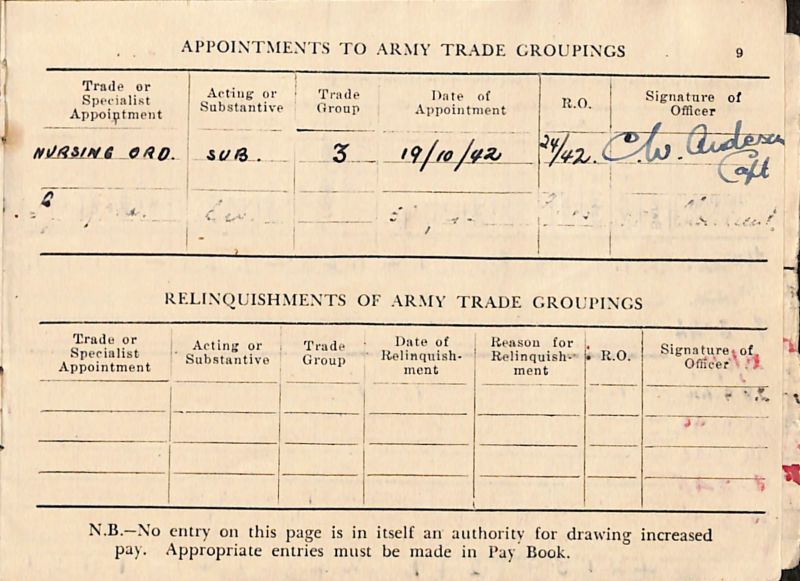 APPOINTMENTS TO ARMY TRADE GROUPINGS 9
Trade or Specialist Appointment Acting or Substantive Trade Group Date of Appointment R.O. Signature of Officer
NURSING ORD. SUB. 3 19/10/42 24/42. C.W. Anderson Capt
RELINQUISHMENTS OF ARMY TRADE GROUPINGS
Trade or Specialist Appointment Acting or Substantive Trade Group Date of Relinquish- ment Reason for Relinquish- ment R.O. Signature of Officer
N.B.—No entry on this page is in itself an authority for drawing increased
pay. Appropriate entries must be made in Pay Book.